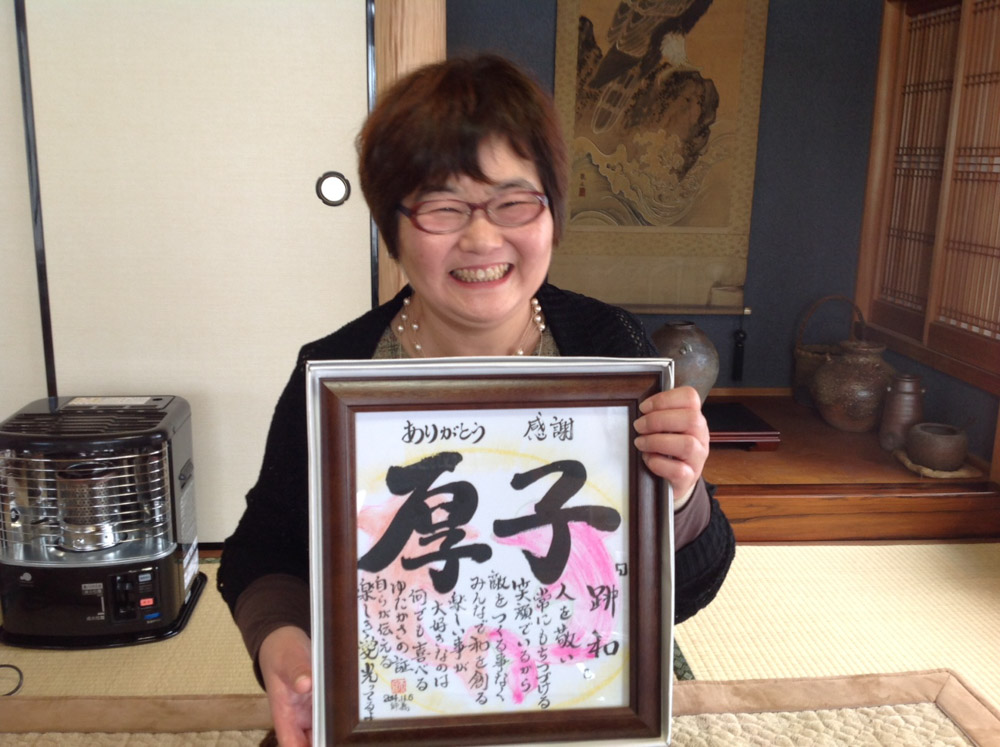 ありがとう 感謝
厚子
人を敬い
常にもちつづける
笑顔でいるから
敵をつくる事なく
みんなで和を創る
楽しい事が
大好きなのは
何でも喜べる
ゆたかさの証
自らが伝える
楽しさ愛光ってる